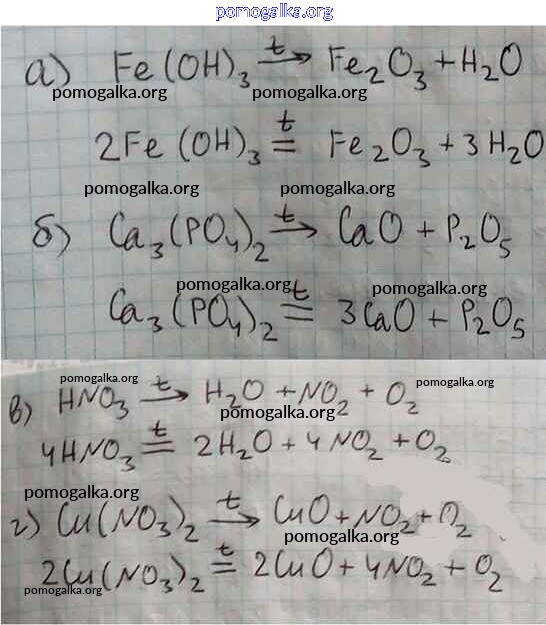 pomogalka.org
а) Fe(OH)₃ →ᵗ Fe₂O₃ + H₂O
pomogalka.org pomogalka.org
2Fe(OH)₃ =ᵗ Fe₂O₃ + 3H₂O
pomogalka.org pomogalka.org
б) Ca₃(PO₄)₂ →ᵗ CaO + P₂O₅
pomogalka.org pomogalka.org
Ca₃(PO₄)₂ =ᵗ 3CaO + P₂O₅
pomogalka.org pomogalka.org
в) HNO₃ →ᵗ H₂O + NO₂ + O₂
pomogalka.org
4HNO₃ =ᵗ 2H₂O + 4NO₂ + O₂
pomogalka.org
г) Cu(NO₃)₂ →ᵗ CuO + NO₂ + O₂
pomogalka.org
2Cu(NO₃)₂ =ᵗ 2CuO + 4NO₂ + O₂
pomogalka.org